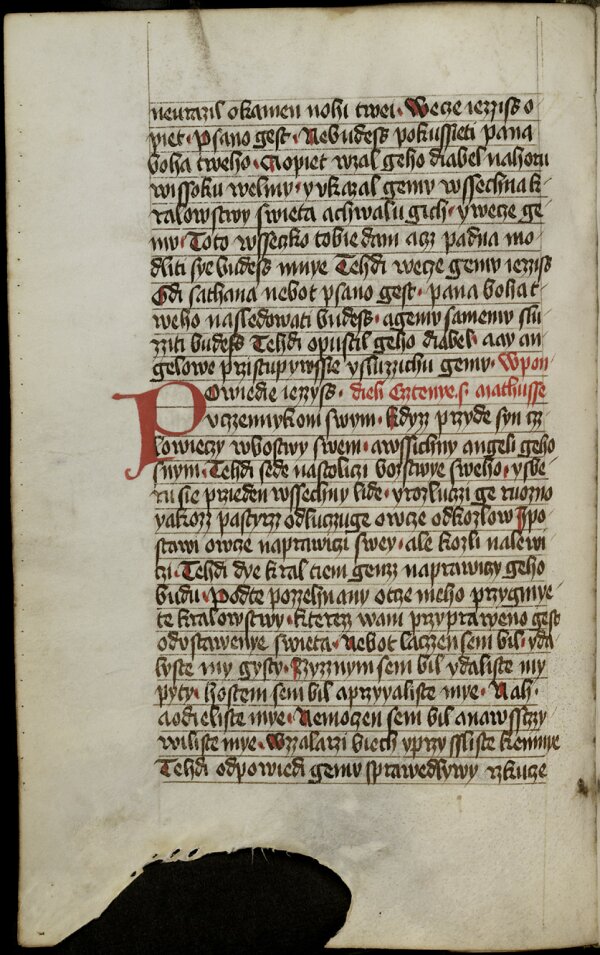 neurazil okamen nohi twei · Wecze iezziss o
piet · psano gest · Nebudess pokussieti pana
boha tweho · Aopiet wzal geho diabel nahoru
wissoku welmy · yvkazal gemv wssechna k
ralowstwy swieta achwalu gich · ywecze ge
mv · Toto wsseczko tobie dam acz padna mo
dliti sye budess mnye Tehdi wecze gemv iezziss
Gdi sathana nebot psano gest · pana boha t
weho nasledowati budess · agemv samemv slu
zziti budess Tehdi opustil geho diabel · aay an
gelowe przistupywssie ysluzzichu gemv · Wpon
Powiedie iezyss · dieli Cztenye · s · Mathusse
vczennykom swym · kdyz przyde syn cz
lowieczy wbostwy swem · awssichny angeli geho
snym · Tehdi sede nastoliczi borstwye sweho · ysbe
ru sie przieden wssechny lide · yrozluczi ge ruozno
yakozz pastyrz odluczuge owcze odkozlow ypo
stawi owcze naprawiczi swey · ale kozli nalewi
czi · Tehdi dye kral tiem genzz naprawiczy geho
budu · Podte pozzehnany otcze meho przygmye
te kralowstwy · kterezz wam przypraweno gest
odvstawenye swieta · Nebot laczen sem bil · yda
lyste my gysty · Zyzznym sem bil ydaliste my
pyty · hostem sem bil aprzyvaliste mye · Nah ·
aodieliste mye · Nemoczen sem bil anawsstzy
wiliste mye · Wzzalarzi biech yprzyssliste kemnye
Tehdi odpowiedi gemv sprawedlywy rzkucze